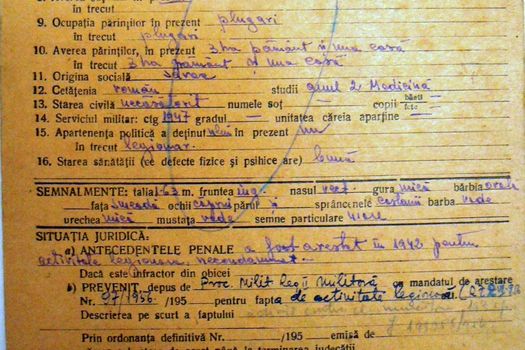 în trecut
9. Ocupația părinților în prezent plugari
în trecut plugari
10. Averea părinților, în prezent 3 ha pământ și una casă
în trecut 3 ha pământ și una casă
11. Origina socială
12. Cetățenia român studii anul 2 Medicină
13. Starea civilă necăsătorit numele soț — copii băeți fete —
14. Serviciul militar: ctg 1947 gradul — unitatea căreia aparține —
15. Apartenența politică a deținutului în prezent nu
în trecut legionar
16. Starea sănătății (ce defecte fizice și psihice are) bună
SEMNALMENTE: talia 1.63 m. fruntea nasul rect. gura mică bărbia ovală
fața ochii căprui părul și sprâncenele castanii barba rade
urechea mică mustața rade semne particulare
SITUAȚIA JURIDICĂ:
a) ANTECEDENTELE PENALE a fost arestat în 1942 pentru
activitate legionară, necondamnat.
Dacă este infractor din obicei
b) PREVENIT, depus de Proc. Milit. leg II Militară cu mandatul de arestare
Nr. 97/1956 /195 pentru fapta de activitate legionară
Descrierea pe scurt a faptului
Prin ordonanța definitivă Nr. /195 emisă de